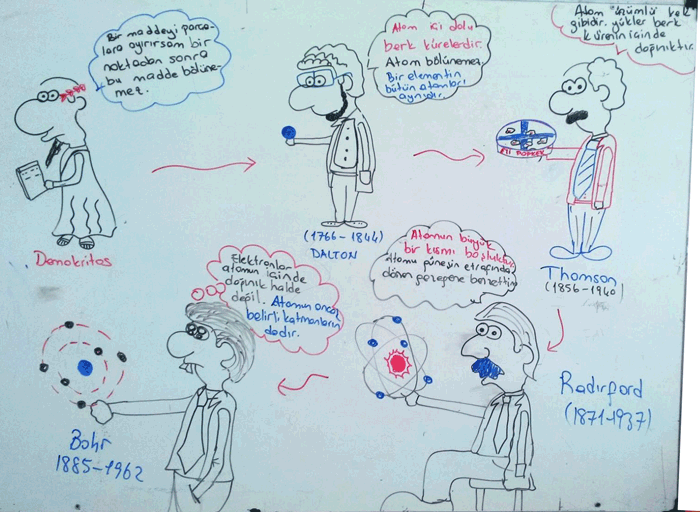 Bir maddeyi parça-
lara ayırırsam bir
noktadan sonra
bu madde bölüne-
mez.
Demokritos
Atom içi dolu
berk kürelerdir.
Atom bölünemez
Bir elementin
bütün atomları
aynıdır.
(1766-1844)
DALTON
Atom üzümlü kek
gibidir. yükler berk
kürenin içinde
dağınıktır.
ETİ POPKEK
Thomson
(1856-1940)
Atomun büyük
bir kısmı boşluktur
Atomu güneşin etrafında
dönen gezegene benzettim
Radırford
(1871-1937)
Elektronlar
atomun içinde
dağınık halde
değil. Atomun ancak
belirli katmanların
dadır.
Bohr
1885-1962